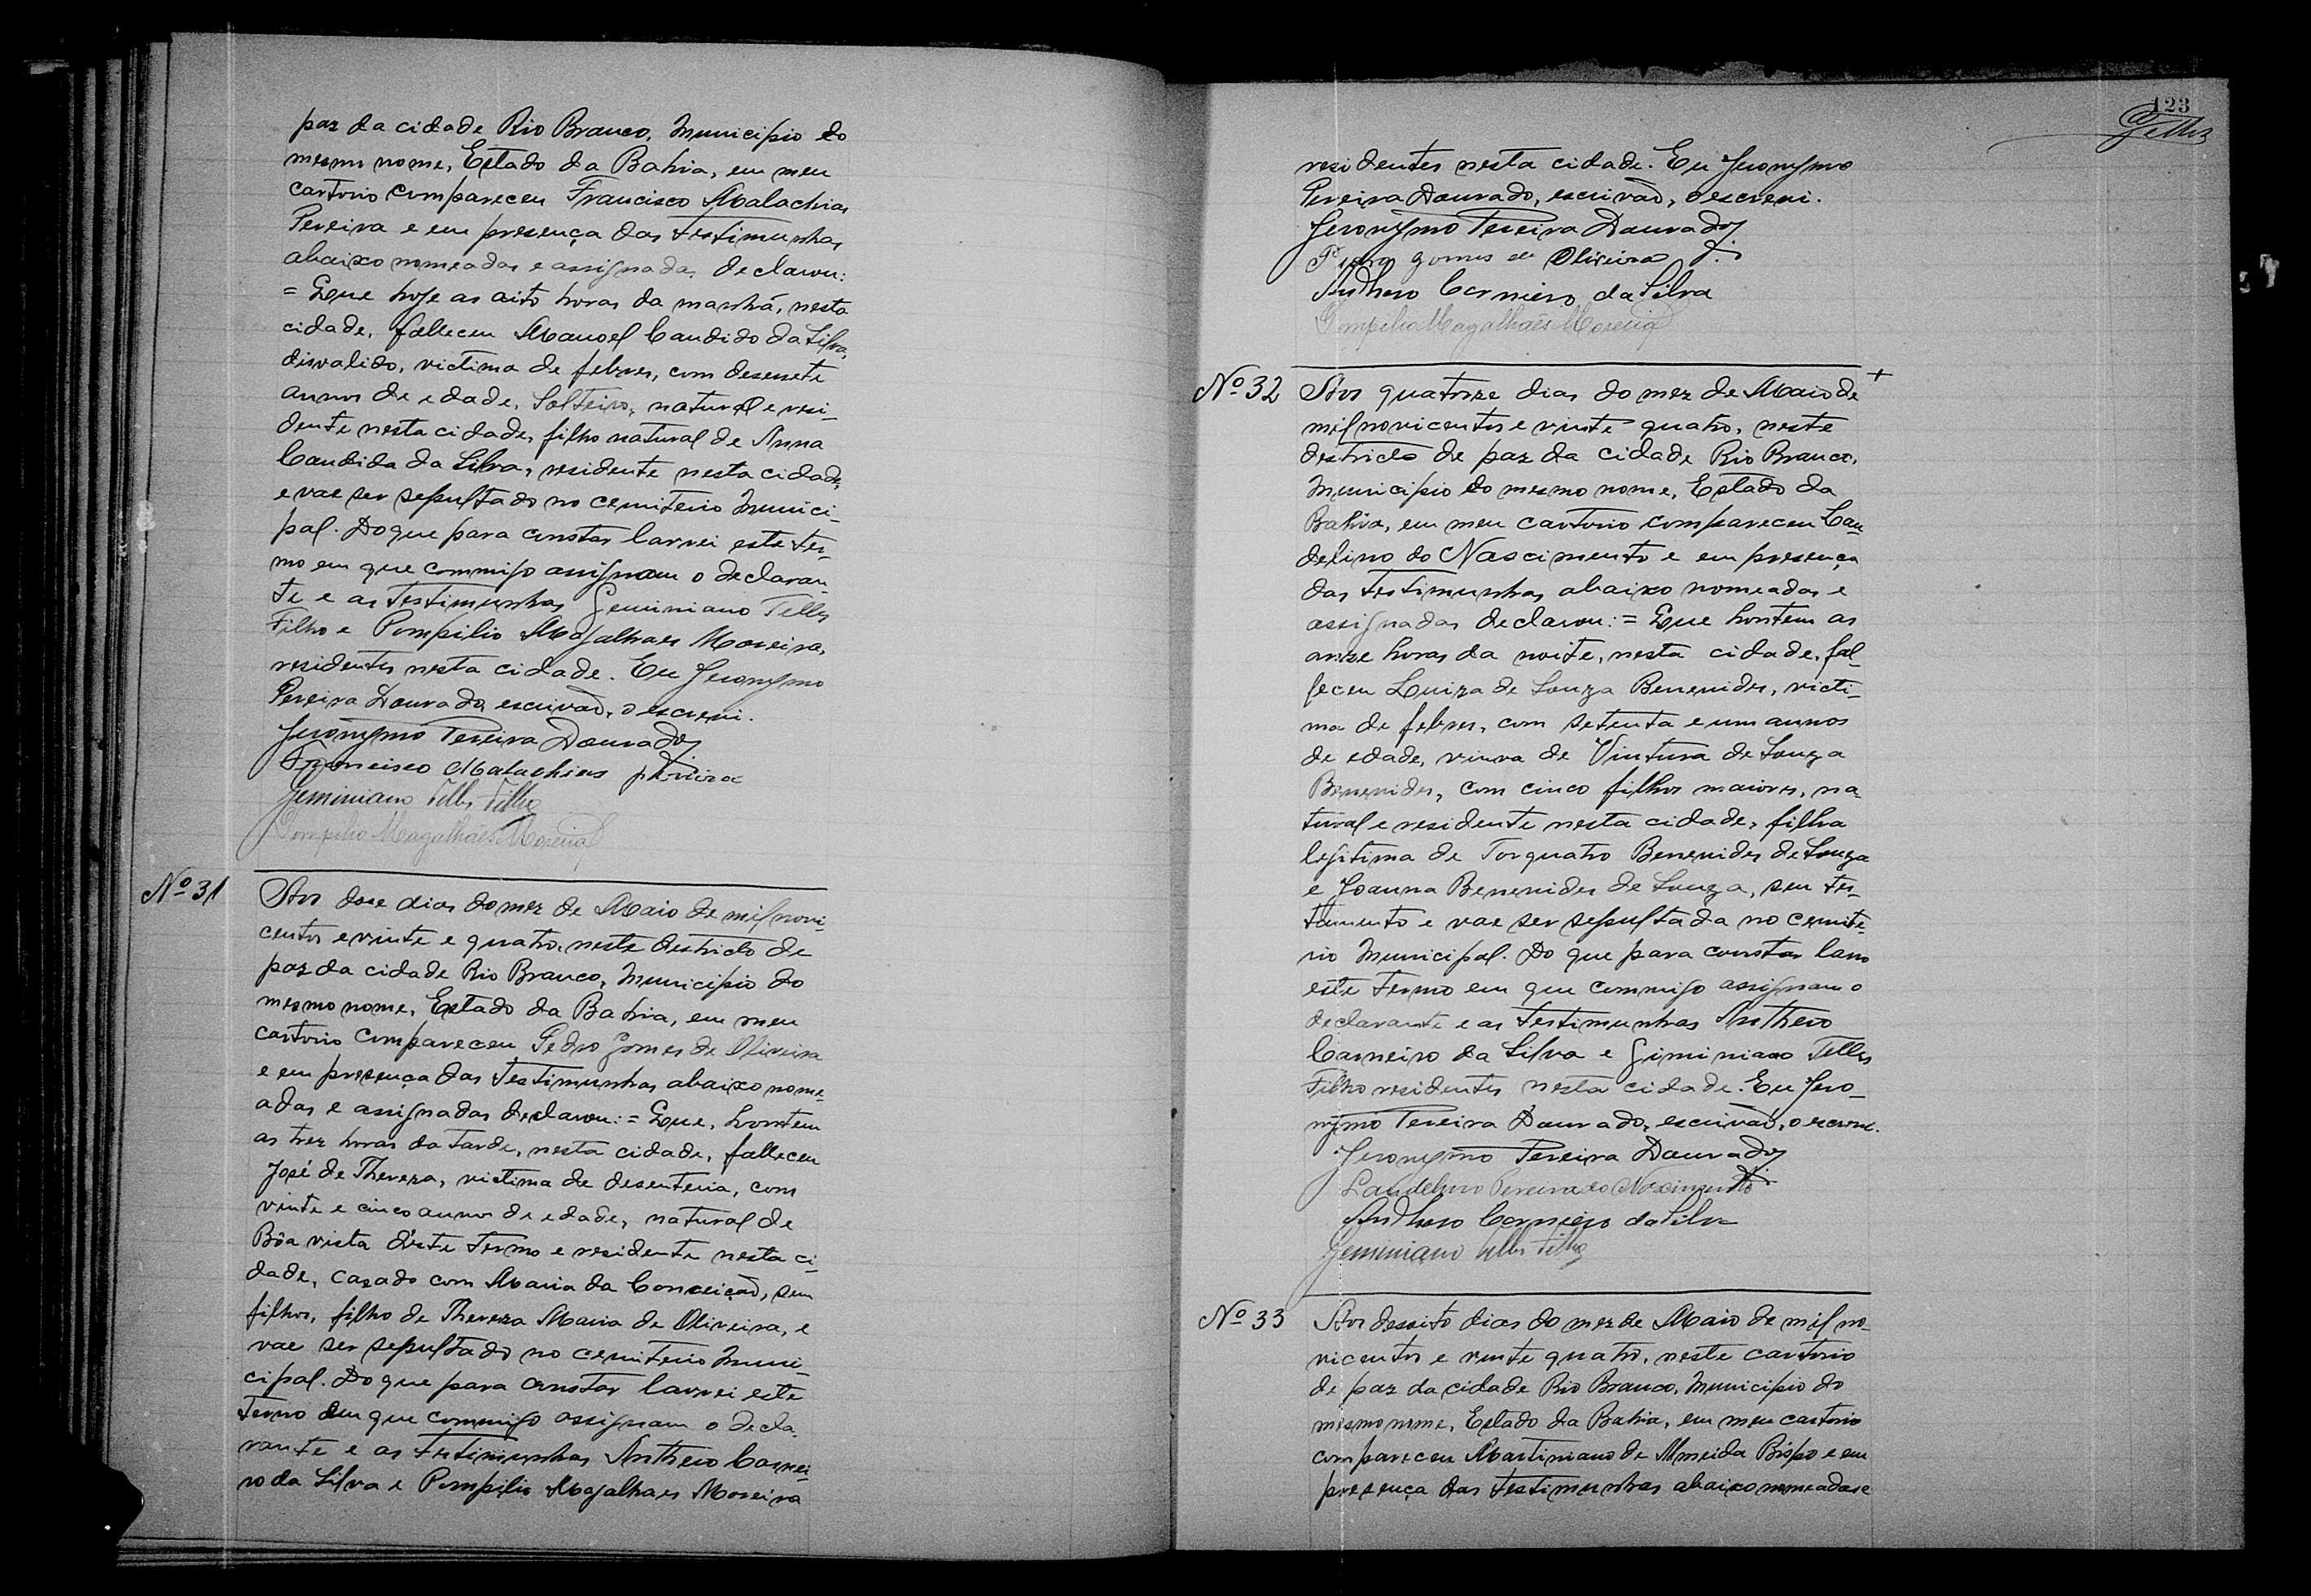 paz da cidade Rio Branco, Municipio do
mesmo nome, Estado da Bahia, em meu
cartorio compareceu Francisco Malachias
Pereira e em presença das testimunhas
abaixo nomeadas e assignadas declarou:
= Que hoje as oito horas da manhã, nesta
cidade, falleceu Manoel Candido da Silva,
disvalido, victima de febres, com desesete
annos de edade, Solteiro, natural e resi-
dente nesta cidade, filho natural de Anna
Candida da Silva, residente nesta cidade,
e vae ser sepultado no cemiterio Munici-
pal. Do que para constar lavrei este ter-
mo em que commigo assignam o declaran-
te e as testimunhas Geminiano Telles
Filho e Pompilio Magalhaes Moreira,
residentes nesta cidade. Eu Jeronymo
Pereira Dourado, escrivão, o escrevi.
Jeronymo Pereira Dourado
Francisco Malachias pereira
Geminiano Telles Filho
Pompilio Magalhães Moreira
Nº 31 Aos dose dias do mez de Maio de mil novi-
centos e vinte e quatro, neste destricto de
paz da cidade Rio Branco, Municipio do
mesmo nome, Estado da Bahia, em meu
cartorio compareceu Pedro Gomes de Oliveira
e em presença das testimunhas abaixo nome-
adas e assignadas declarou: = Que, hontem
as trez horas da tarde, nesta cidade, falleceu
José de Thereza, victima de desenteria, com
vinte e cinco annos de edade, natural de
Bôa vista d'este termo e residente nesta ci-
dade, casado com Maria da Conceição, sem
filhos, filho de Thereza Maria de Oliveira, e
vae ser sepultado no cemiterio Muni-
cipal. Do que para constar lavrei este
termo em que commigo assignam o decla-
rante e as testimunhas Anthero Carnei-
ro da Silva e Pompilio Magalhaes Moreira
123
Telles
residentes nesta cidade. Eu Jeronymo
Pereira Dourado, escrivão, o escrevi.
Jeronymo Pereira Dourado
Pedro gomes de Oliveira
Anthero Carneiro da Silva
Pompilio Magalhães Moreira
Nº 32 Aos quatorze dias do mez de Maio de +
mil novicentos e vinte quatro, neste
destricto de paz da cidade Rio Branco,
Municipio do mesmo nome, Estado da
Bahia, em meu cartorio compareceu Lan-
delino do Nascimento e em presença
das testimunhas abaixo nomeadas e
assignadas declarou: = Que hontem as
onze horas da noite, nesta cidade, fal-
leceu Luiza de Souza Benevides, victi-
ma de febres, com setenta e um annos
de edade, viuva de Vintura de Souza
Benevides, com cinco filhos maiores, na-
tural e residente nesta cidade, filha
legitima de Torquato Benevides de Souza
e Joanna Benevides de Souza, sem tes-
tamento e vae ser sepultada no cemite-
rio Municipal. Do que para constar lavro
este termo em que commigo assignam o
declarante e as testimunhas Anthero
Carneiro da Silva e Giminiano Telles
Filho residentes nesta cidade. Eu Jero-
nymo Pereira Dourado, escrivão, o escrevi.
Jeronymo Pereira Dourado
Landelino Pereira do Nascimento
Anthero Carneiro da Silva
Geminiano Telles Filho
Nº 33 Aos desoito dias do mez de Maio de mil no-
vicentos e vinte quatro, neste cartorio
de paz da cidade Rio Branco, Municipio do
mesmo nome, Estado da Bahia, em meu cartorio
compareceu Martiniano de Almeida Bispo e em
presença das testimunhas abaixo nomeadas e